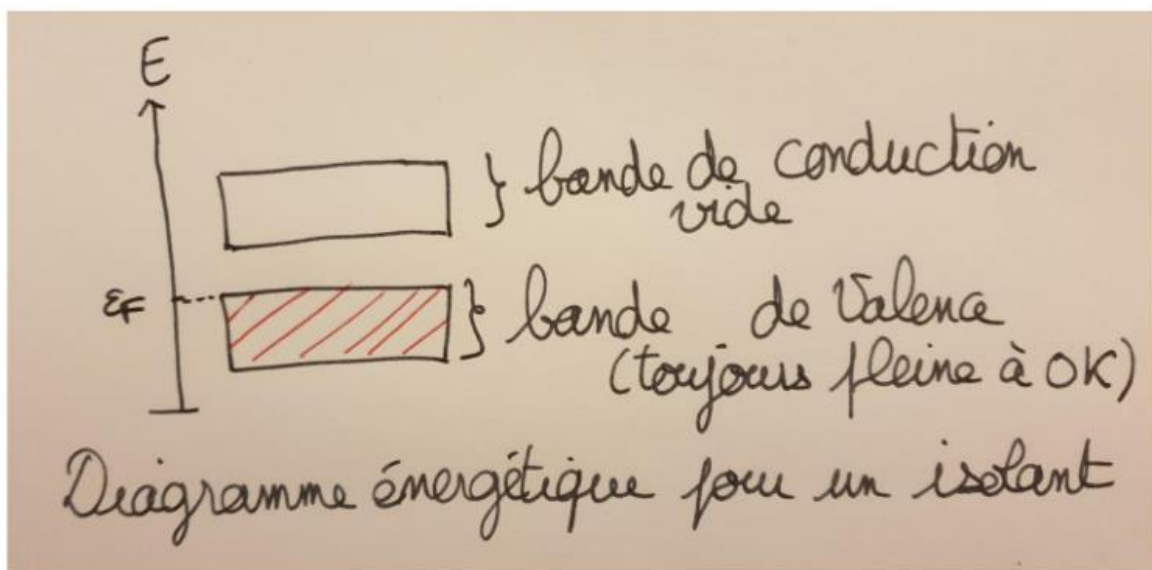 E
} bande de conduction
vide
εF
} bande de Valence
(toujours pleine à 0K)
Diagramme énergétique pour un isolant